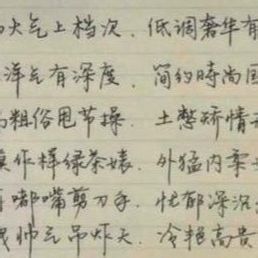 大气上档次．低调奢华有
洋气有深度．简约時尚国
粗俗甩节操．土憋矫情
作样绿茶婊．外猛内柔
嘟嘴剪刀手．忧郁深沉
帅气吊炸天．冷艳高贵